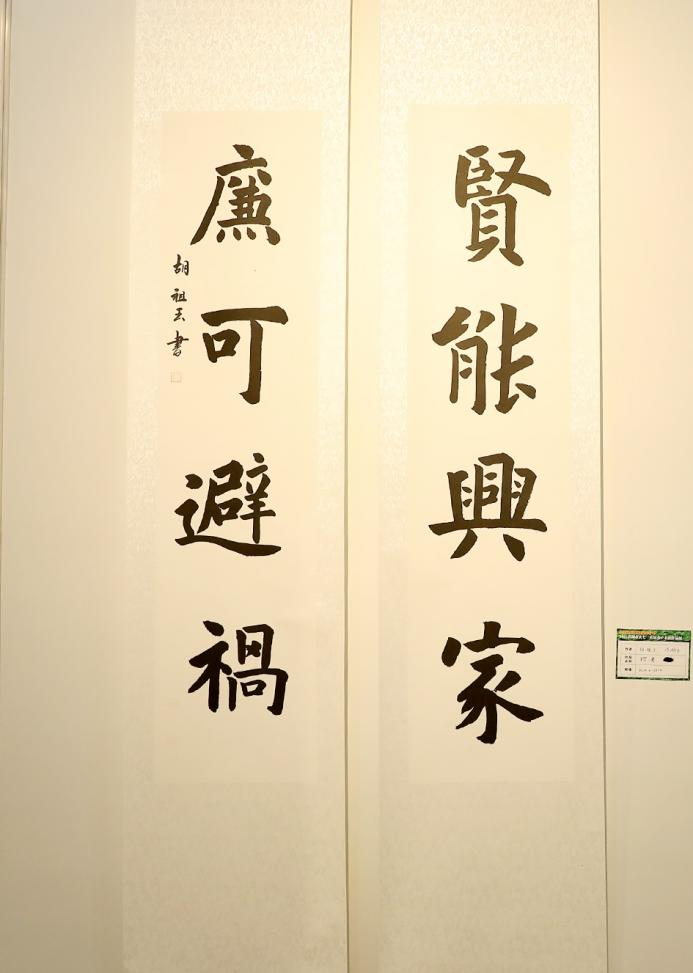 賢能興家
廉可避禍
胡祖玉書